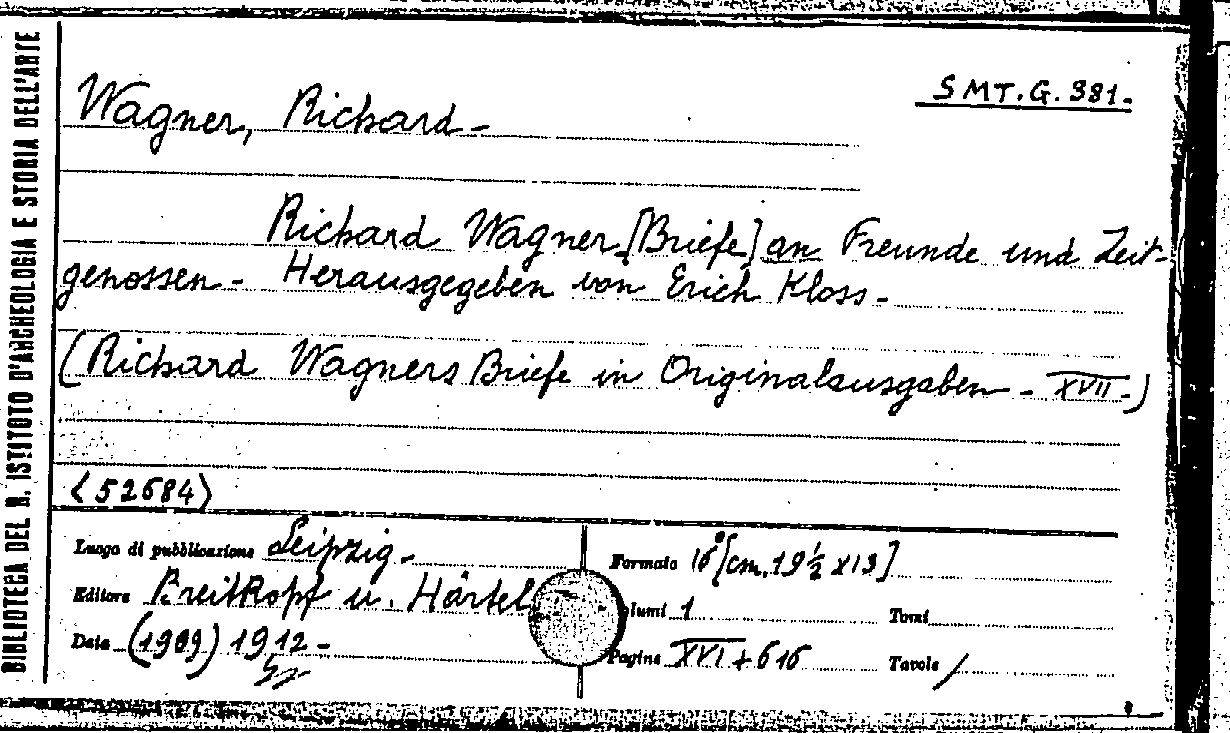 BIBLIOTECA DEL R. ISTITUTO D'ARCHEOLOGIA E STORIA DELL'ARTE
SMT.G.381.
Wagner, Richard -
Richard Wagner [Briefe] an Freunde und Zeit-
genossen - Herausgegeben von Erich Kloss -
(Richard Wagners Briefe in Originalausgaben - XVII -)
<52684>
Luogo di pubblicazione Leipzig -
Editore Breitkopf u. Härtel
Data (1909) 1912 -
Formato 16° [cm. 19 ½ x 13]
lumi 1 Tomi
Pagine XVI + 616 Tavole /